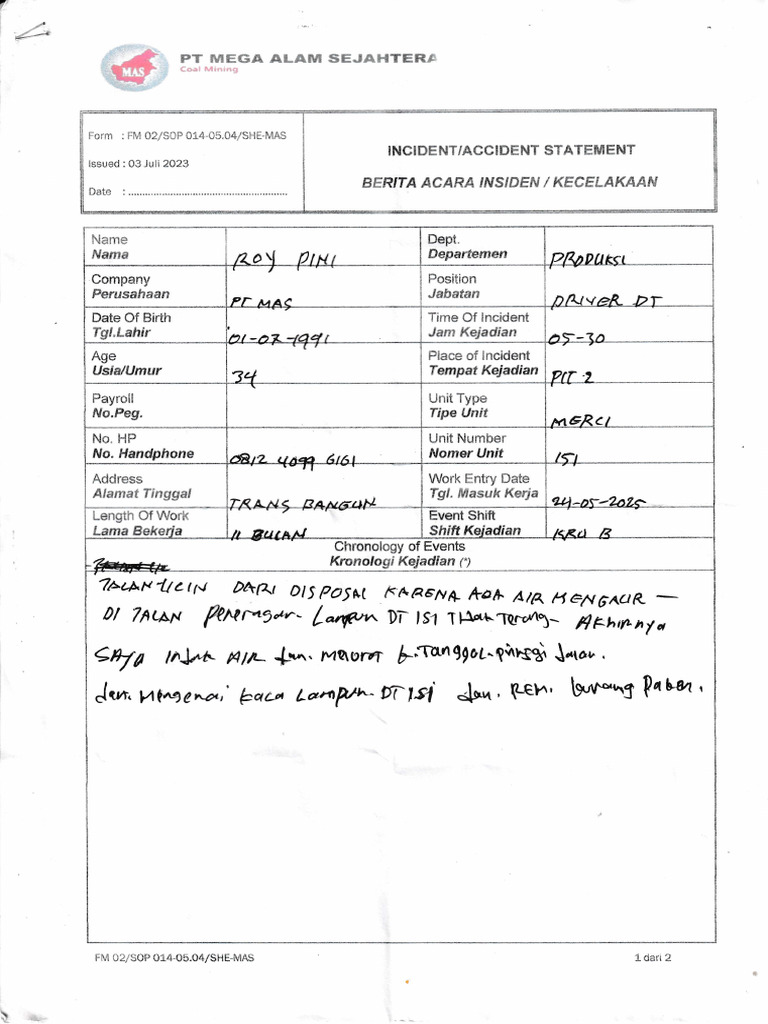 MAS
PT MEGA ALAM SEJAHTERA
Coal Mining
Form : FM 02/SOP 014-05.04/SHE-MAS
Issued : 03 Juli 2023
Date : ......................................................
INCIDENT/ACCIDENT STATEMENT
BERITA ACARA INSIDEN / KECELAKAAN
Name
Nama
ROY PINI
Dept.
Departemen
PRODUKSI
Company
Perusahaan
PT MAS
Position
Jabatan
DRIVER DT
Date Of Birth
Tgl.Lahir
01-07-1991
Time Of Incident
Jam Kejadian
05-30
Age
Usia/Umur
34
Place of Incident
Tempat Kejadian
PIT 2
Payroll
No.Peg.
Unit Type
Tipe Unit
MERCI
No. HP
No. Handphone
0812 4099 6161
Unit Number
Nomer Unit
151
Address
Alamat Tinggal
TRANS BANGUN
Work Entry Date
Tgl. Masuk Kerja
24-05-2025
Length Of Work
Lama Bekerja
11 BULAN
Event Shift
Shift Kejadian
KRU B
Chronology of Events
Kronologi Kejadian (*)
JALAN LICIN DARI DISPOSAL KARENA ADA AIR MENGALIR —
DI JALAN Penerangan Lampun DT ISI Tidak Terang - AKhirnya
SAYA INJAK AIR dan. Melorot k.Tanggol.pinggi Jalan.
dan. Mengenai kaca Lampun. DT ISI dan. REM. kurang Paken.
FM 02/SOP 014-05.04/SHE-MAS
1 dari 2